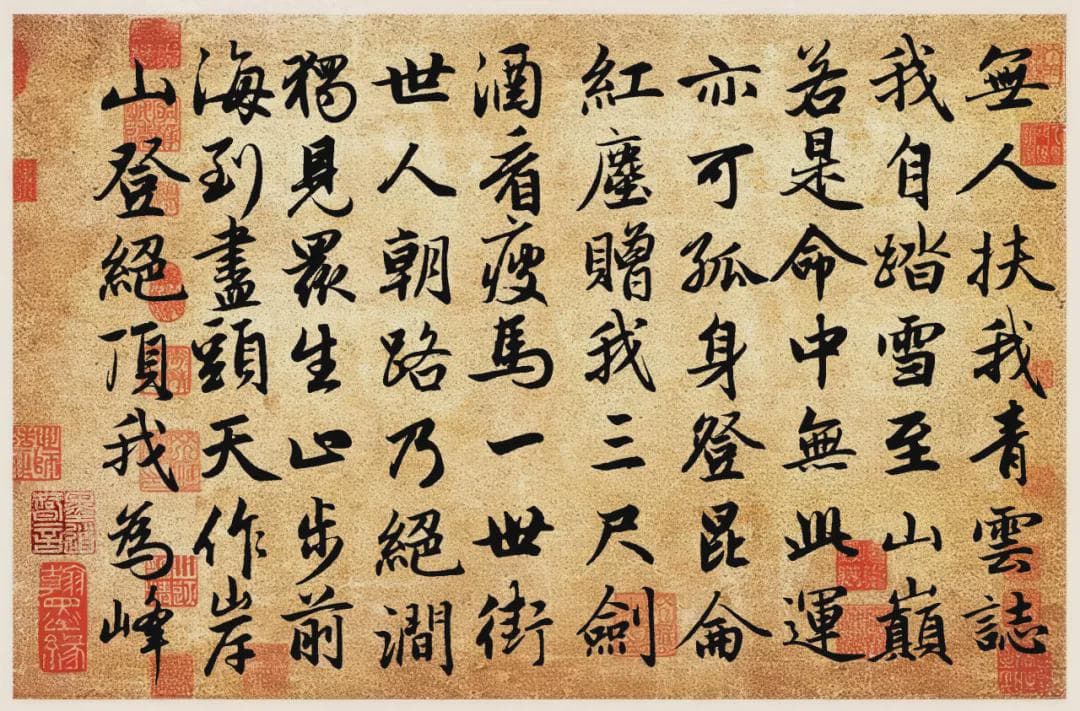 無人扶我青雲誌
我自踏雪至山巔
若是命中無此運
亦可孤身登昆侖
紅塵贈我三尺劍
酒看瘦馬一世街
世人朝路乃絕澗
獨見眾生止步前
海到盡頭天作岸
山登絕頂我為峰
翰墨緣